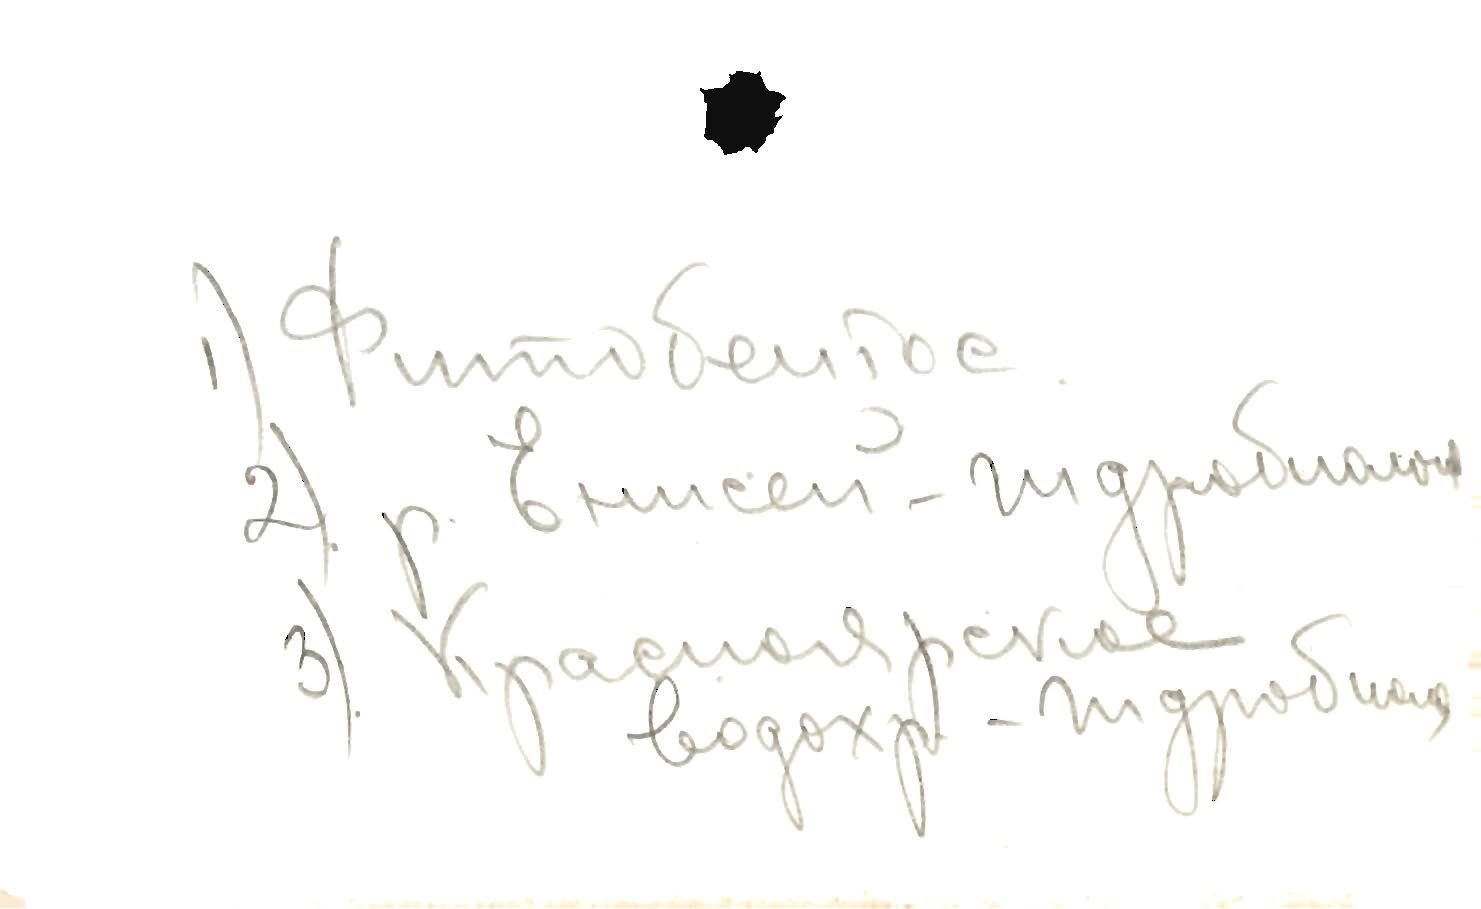 1) Фитобентос.
2). р. Енисей - гидробиолог
3). Красноярское
водохр. - гидробиол